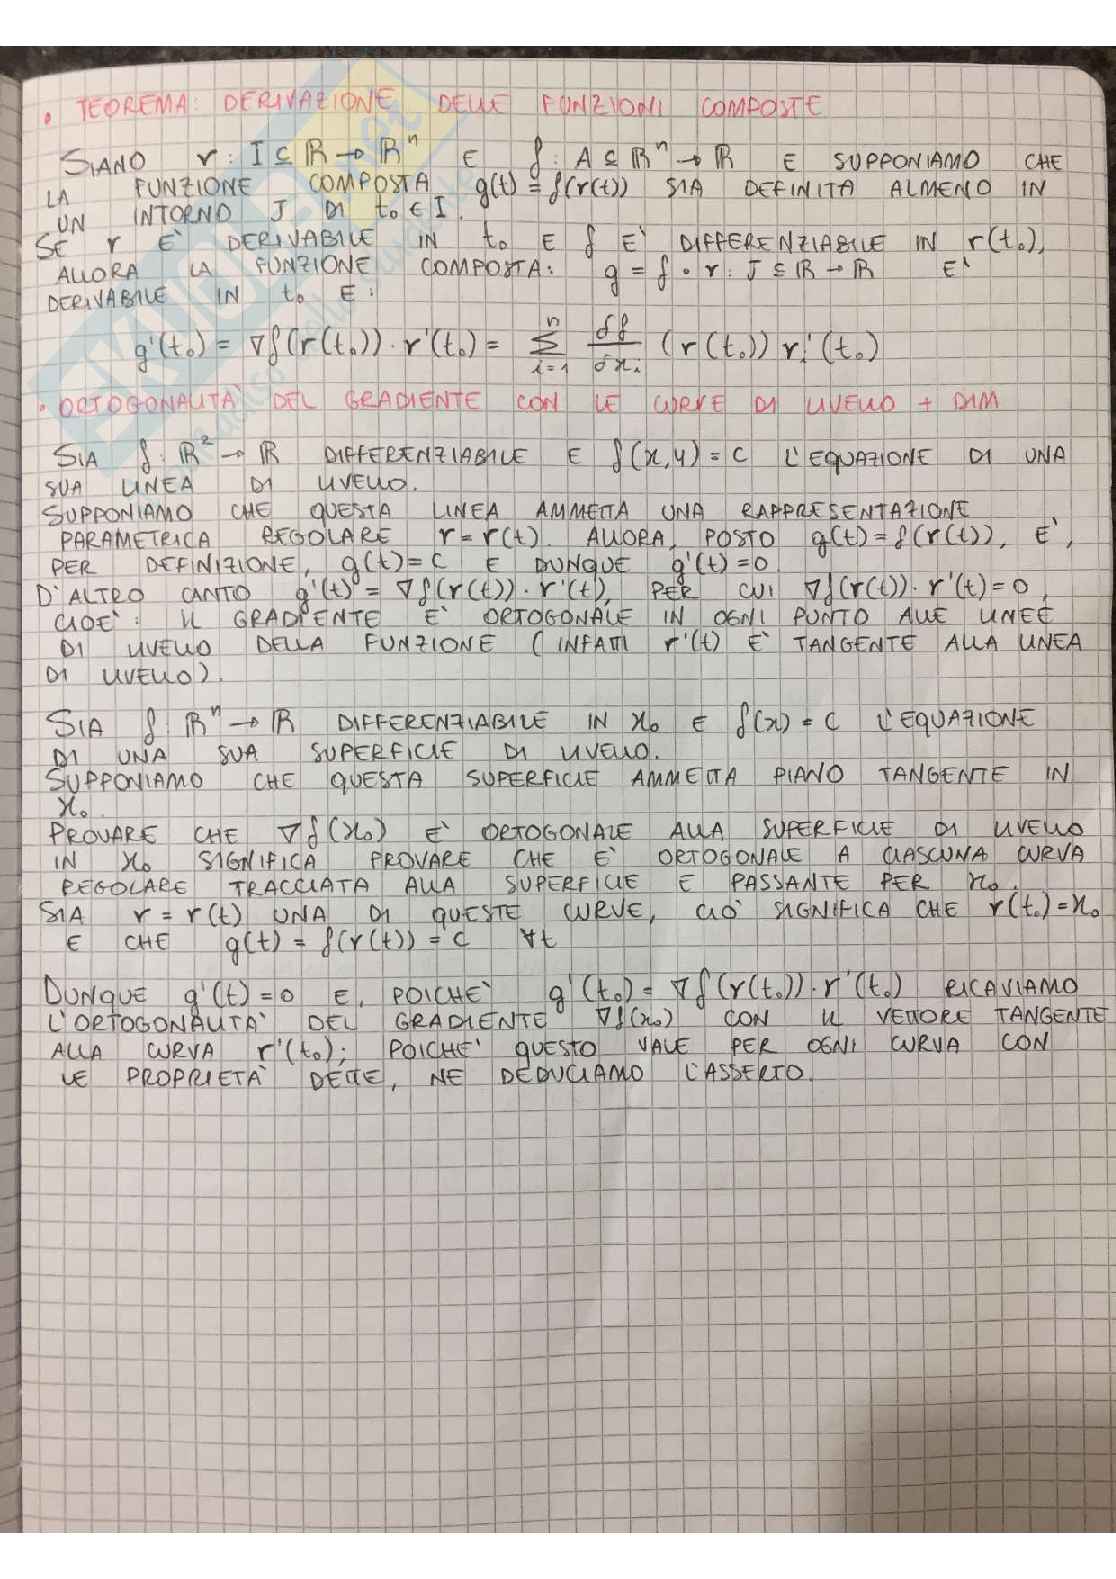 • TEOREMA: DERIVAZIONE DELLE FUNZIONI COMPOSTE
SIANO r: I ⊆ ℝ → ℝⁿ E f: A ⊆ ℝⁿ → ℝ E SUPPONIAMO CHE
LA FUNZIONE COMPOSTA g(t) = f(r(t)) SIA DEFINITA ALMENO IN
UN INTORNO J DI t₀ ∈ I.
SE r E' DERIVABILE IN t₀ E f E' DIFFERENZIABILE IN r(t₀),
ALLORA LA FUNZIONE COMPOSTA: g = f ∘ r: J ⊆ ℝ → ℝ E'
DERIVABILE IN t₀ E:
g'(t₀) = ∇f(r(t₀)) · r'(t₀) = Σ_{i=1}^{n} δf/δxᵢ (r(t₀)) rᵢ'(t₀)
• ORTOGONALITA' DEL GRADIENTE CON LE CURVE DI LIVELLO + DIM
SIA f: ℝ² → ℝ DIFFERENZIABILE E f(x,y) = C L'EQUAZIONE DI UNA
SUA LINEA DI LIVELLO.
SUPPONIAMO CHE QUESTA LINEA AMMETTA UNA RAPPRESENTAZIONE
PARAMETRICA REGOLARE r = r(t). ALLORA, POSTO g(t) = f(r(t)), E',
PER DEFINIZIONE, g(t) = C E DUNQUE g'(t) = 0
D'ALTRO CANTO g'(t) = ∇f(r(t)) · r'(t), PER CUI ∇f(r(t)) · r'(t) = 0,
CIOE': IL GRADIENTE E' ORTOGONALE IN OGNI PUNTO ALLE LINEE
DI LIVELLO DELLA FUNZIONE (INFATTI r'(t) E' TANGENTE ALLA LINEA
DI LIVELLO).
SIA f: ℝⁿ → ℝ DIFFERENZIABILE IN x₀ E f(x) = C L'EQUAZIONE
DI UNA SUA SUPERFICIE DI LIVELLO.
SUPPONIAMO CHE QUESTA SUPERFICIE AMMETTA PIANO TANGENTE IN
x₀.
PROVARE CHE ∇f(x₀) E' ORTOGONALE ALLA SUPERFICIE DI LIVELLO
IN x₀ SIGNIFICA PROVARE CHE E' ORTOGONALE A CIASCUNA CURVA
REGOLARE TRACCIATA ALLA SUPERFICIE E PASSANTE PER x₀.
SIA r = r(t) UNA DI QUESTE CURVE, CIO' SIGNIFICA CHE r(t₀) = x₀
E CHE g(t) = f(r(t)) = C ∀t
DUNQUE g'(t) = 0 E, POICHE' g'(t₀) = ∇f(r(t₀)) · r'(t₀) RICAVIAMO
L'ORTOGONALITA' DEL GRADIENTE ∇f(x₀) CON IL VETTORE TANGENTE
ALLA CURVA r'(t₀); POICHE' QUESTO VALE PER OGNI CURVA CON
LE PROPRIETA' DETTE, NE DEDUCIAMO L'ASSERTO.